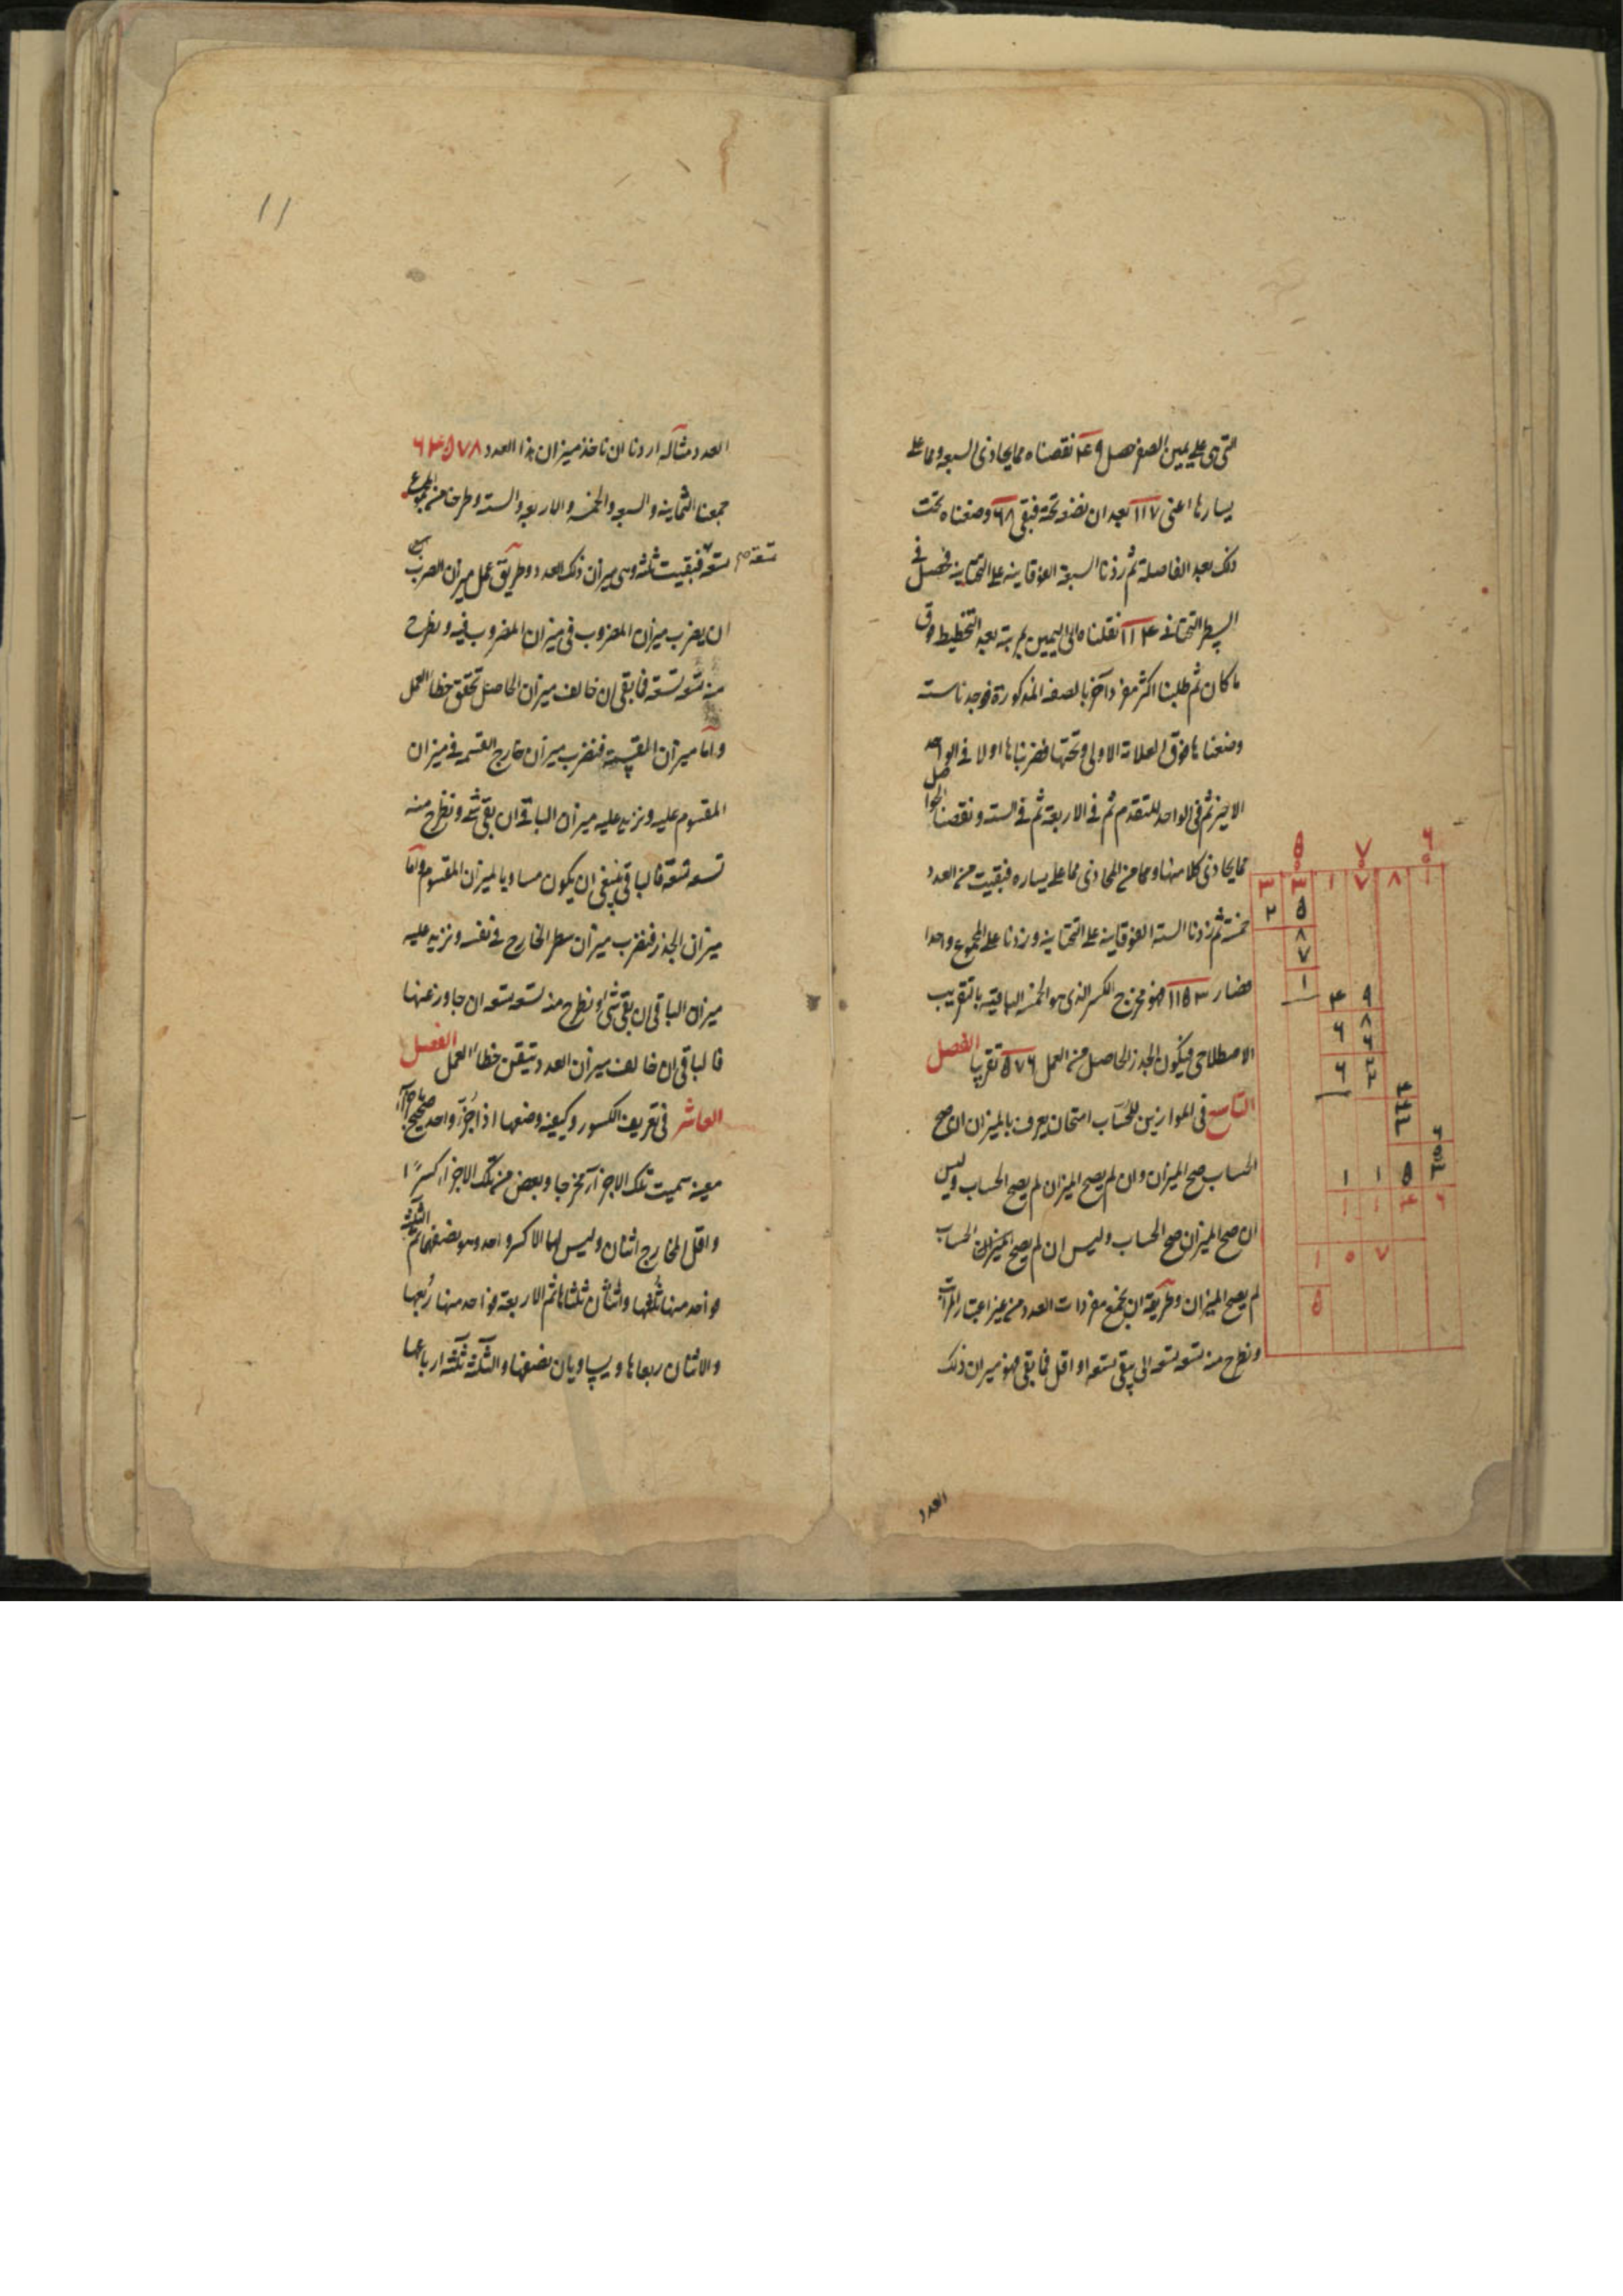 التي هي على يمين الصفر حصل ٤٩ نقصناه مما يحاذى السبعة ومما على
يسارها اعنى ١١٧ بعد ان نضعه تحته فبقى ٦٨ وضعناه تحت
ذلك بعد الفاصلة ثم زدنا السبعة الفوقانية على التحتانية فحصل فى
السطر التحتانى ١١٤ نقلناه الى اليمين بمرتبة بعد التخطيط فوق
ما كان ثم طلبنا اكثر مفرد آخر بالصفه المذكورة فوجدنا سته
وضعناها فوق العلامة الاولى وتحتها فضربناها اولا فى الواحد
الاخير ثم فى الواحد المتقدم ثم فى الاربعة ثم فى الستة ونقصنا الحواصل
مما يحاذى كلا منها ومما من المحاذى مما على يساره فبقيت من العدد
خمسة ثم زدنا الستة الفوقانية على التحتانية وزدنا على المجموع واحدا
فصار ١١٥٣ فهو مخرج الكسر الذى هو الخمسة الباقية بالتقريب
الاصطلاحى فيكون الجذر الحاصل من العمل ٥٧٦ تقريبا الفصل
التاسع فى الموازين للحُسّاب امتحان يعرف بالميزان ان صح
الحساب صح الميزان وان لم يصح الميزان لم يصح الحساب وليس
ان صح الميزان صح الحساب وليس ان لم يصح الحساب
لم يصح الميزان وطريقه ان يجمع مفردات العدد من غير اعتبار المراتب
ونطرح منه تسعه تسعه الى يبقى تسعه او اقل فما بقى فهو ميزان ذلك
العدد
٥ ٧ ٦
٣ ٣ ١ ٧ ٨ ١
٢ ٥
٨
٧
١
٤ ٩
٦ ٨
١ ١ ٥ ٣
١ ١ ٤ ٦
١ ٠ ٧
٥
١١
العدد مثاله اردنا ان ناخذ ميزان هذا العدد ٦٤٥٧٨
جمعنا الثمانية والسبعة والخمسة والاربعة والستة وطرحنا من المجموع
تسعة تسعه فبقيت ثلثه وهى ميزان ذلك العدد وطريق عمل ميزان الضرب
ان يضرب ميزان المضروب فى ميزان المضروب فيه ونطرح
منه تسعه تسعة فما بقى ان خالف ميزان الحاصل تحقق خطا العمل
واما ميزان القسمة فنضرب ميزان خارج القسمه فى ميزان
المقسوم عليه ونزيد عليه ميزان الباقى ان بقى شئ ونطرح منه
تسعه تسعة فالباقى ينبغى ان يكون مساويا لميزان المقسوم واما
ميزان الجذر فنضرب ميزان سطر الخارج فى نفسه ونزيد عليه
ميزان الباقى ان بقى شئ ونطرح منه تسعه تسعه ان جاوز عنها
فالباقى ان خالف ميزان العدد تيقن خطاء العمل الفصل
العاشر فى تعريف الكسور وكيفية وضعها اذا جُزّئ واحد صحيح باجزآء
معينه سميت تلك الاجزآء مخرجا وبعض من تلك الاجزآء كسرًا
واقل المخارج اثنان وليس لها الا كسر واحد وهو نصفها ثم الثلثة
فواحد منها ثلثها واثنان ثلثاها ثم الاربعة فواحد منها رُبعها
والاثنان ربعاها ويساويان نصفها والثلثة ثلثة ارباعها